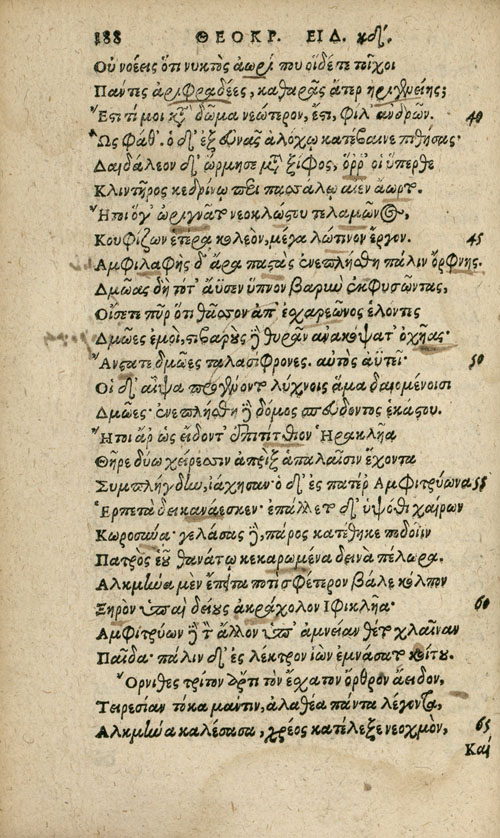 188 ΘΕΟΚΡ. ΕΙΔ. κδ'.
Οὐ νοέεις ὅτι νυκτὸς ἀωρί που οἵδέ τε τοῖχοι
Πάντες ἀριφραδέες, καθαρᾶς ἅτερ ἠριγενείης;
Ἔστι τί μοι κατὰ δῶμα νεώτερον, ἔστι, φίλ' ἀνδρῶν. 40
Ὣς φάθ'. ὁ δ' ἐξ εὐνᾶς ἀλόχῳ κατέβαινε πιθήσας·
Δαιδάλεον δ' ὥρμησε μετὰ ξίφος, ὅρρ' οἱ ὕπερθε
Κλιντῆρος κεδρίνω περὶ πασσάλῳ αἰὲν ἄωρτο.
Ἤτοι ὅγ' ὠριγνᾶτο νεοκλώστου τελαμῶνος,
Κουφίζων ἑτέρᾳ κολεὸν, μέγα λώτινον ἔργον. 45
Ἀμφιλαφὴς δ' ἄρα παστὰς ἐνεπλήσθη πάλιν ὄρφνης.
Δμῶας δὴ τότ' ἄϋσεν ὕπνον βαρὺν ἐκφυσῶντας,
Οἴσετε πῦρ ὅτι θᾶσσον ἀπ' ἐσχαρεῶνος ἑλόντες
Δμῶες ἐμοὶ, στιβαροὺς δὲ θυρᾶν ἀνακόψατ' ὀχῆας·
Ἄνστατε δμῶες ταλασίφρονες. αὐτὸς ἀϋτεῖ· 50
Οἱ δ' αἶψα προγένοντο λύχνοις ἅμα δαιομένοισι
Δμῶες· ἐνεπλήσθη δὲ δόμος σπεύδοντος ἑκάστου.
Ἤτοι ἄρ' ὡς εἴδοντ' ἐπιτίτθιον Ἡρακλῆα
Θῆρε δύω χείρεσσιν ἀπρὶξ ἁπαλαῖσιν ἔχοντα
Συμπλήγδην, ἰάχησαν· ὁ δ' ἐς πατέρ' Ἀμφιτρύωνα 55
Ἑρπετὰ δεικανάεσκεν· ἐπάλλετο δ' ὑψόθι χαίρων
Κωροσύνᾳ· γελάσας δὲ, πάρος κατέθηκε ποδοῖϊν
Πατρὸς ἑοῦ θανάτῳ κεκαρωμένα δεινὰ πέλωρα.
Ἀλκμήνα μὲν ἔπειτα ποτὶ σφέτερον βάλε κόλπον
Ξηρὸν ὑπαὶ δείους ἀκράχολον Ἰφικλῆα· 60
Ἀμφιτρύων δὲ τὸν ἄλλον ὑπ' ἀμνείαν θέτο χλαῖναν
Παῖδα· πάλιν δ' ἐς λέκτρον ἰὼν ἐμνάσατο κοίτου.
Ὄρνιθες τρίτον ἄρτι τὸν ἔσχατον ὄρθρον ἄειδον,
Τειρεσίαν τόκα μάντιν, ἀλαθέα πάντα λέγοντα,
Ἀλκμήνα καλέσασα, χρέος κατέλεξε νεοχμὸν, 65
Καί